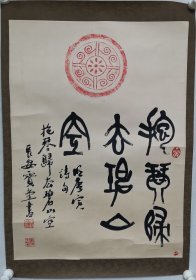 抱琴歸
去碧山
空
明唐寅
詩句
抱琴歸去碧山空
長安 書